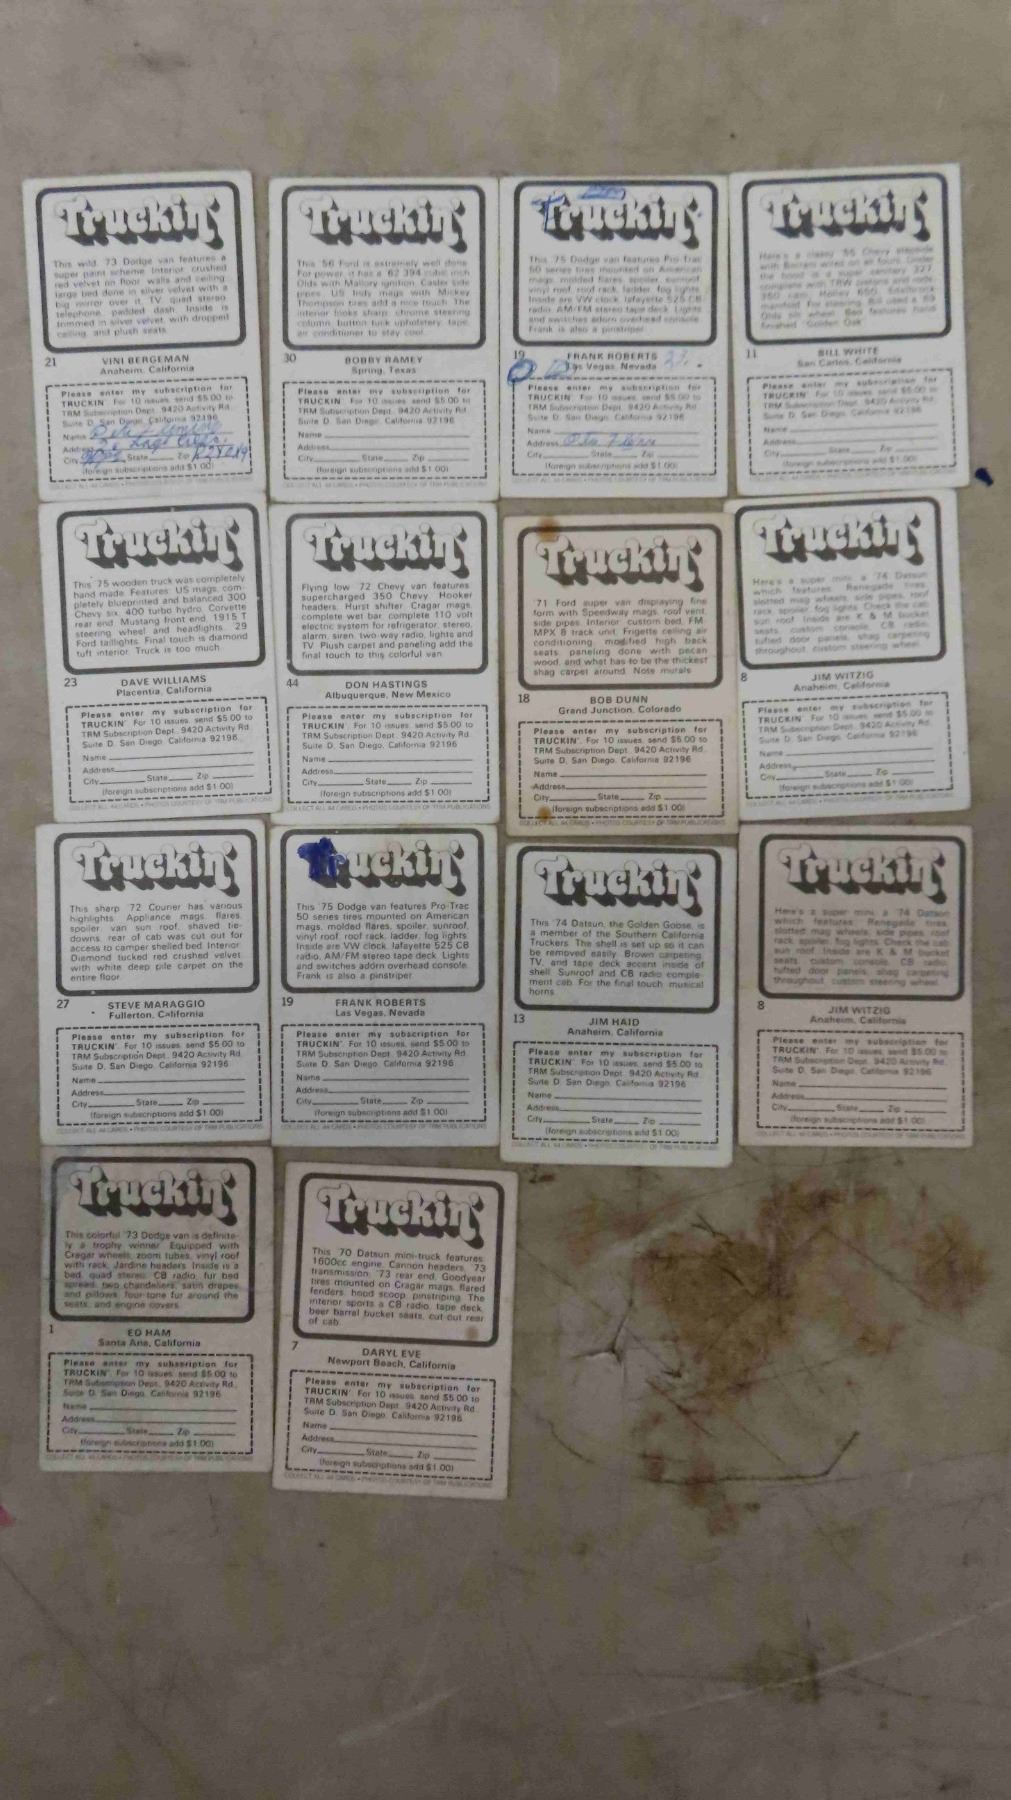 Truckin'
This wild '73 Dodge van features a
super paint scheme. Interior crushed
red velvet on floor walls and ceiling,
large bed done in silver velvet with a
big mirror over it, TV, quad stereo,
telephone, padded dash. Inside is
trimmed in silver velvet, with dropped
ceiling, and plush seats.
21 VINI BERGEMAN
Anaheim, California
Please enter my subscription for
TRUCKIN'. For 10 issues, send $5.00 to
TRM Subscription Dept., 9420 Activity Rd.,
Suite D, San Diego, California 92196
Name
Address
City State Zip
(foreign subscriptions add $1.00)
COLLECT ALL 44 CARDS • PHOTOS COURTESY OF TRM PUBLICATIONS
Truckin'
This '56 Ford is extremely well done.
For power, it has a 62 394 cubic inch
Olds with Mallory ignition, Casler side
pipes, US Indy mags with Mickey
Thompson tires add a nice touch. The
interior looks sharp, chrome steering
column, button tuck upholstery, tape,
air conditioner to stay cool.
30 BOBBY RAMEY
Spring, Texas
Please enter my subscription for
TRUCKIN'. For 10 issues, send $5.00 to
TRM Subscription Dept., 9420 Activity Rd.,
Suite D, San Diego, California 92196
Name
Address
City State Zip
(foreign subscriptions add $1.00)
COLLECT ALL 44 CARDS • PHOTOS COURTESY OF TRM PUBLICATIONS
Truckin'
This '75 Dodge van features Pro-Trac
50 series tires mounted on American
mags, molded flares, spoiler, sunroof,
vinyl roof, roof rack, ladder, fog lights.
Inside are VW clock, lafayette 525 CB
radio, AM/FM stereo tape deck. Lights
and switches adorn overhead console.
Frank is also a pinstriper.
19 FRANK ROBERTS
Las Vegas, Nevada
Please enter my subscription for
TRUCKIN'. For 10 issues, send $5.00 to
TRM Subscription Dept., 9420 Activity Rd.,
Suite D, San Diego, California 92196
Name
Address
City State Zip
(foreign subscriptions add $1.00)
COLLECT ALL 44 CARDS • PHOTOS COURTESY OF TRM PUBLICATIONS
Truckin'
Here's a classy '55 Chevy stepside
with wires on all fours. Under
the hood is a super sanitary 327,
complete with TRW pistons and rods,
350 cam, Holley 650, Edelbrock
manifold. For steering, Bill used a 69
Olds tilt wheel. Bed features hand
finished Golden Oak
11 BILL WHITE
San Carlos, California
Please enter my subscription for
TRUCKIN'. For 10 issues, send $5.00 to
TRM Subscription Dept., 9420 Activity Rd.,
Suite D, San Diego, California 92196
Name
Address
City State Zip
(foreign subscriptions add $1.00)
COLLECT ALL 44 CARDS • PHOTOS COURTESY OF TRM PUBLICATIONS
Truckin'
This '75 wooden truck was completely
hand made. Features: US mags, com-
pletely blueprinted and balanced 300
Chevy six, 400 turbo hydro, Corvette
rear end, Mustang front end, 1915 T
steering wheel and headlights, 29
Ford taillights. Final touch is diamond
tuft interior. Truck is too much.
23 DAVE WILLIAMS
Placentia, California
Please enter my subscription for
TRUCKIN'. For 10 issues, send $5.00 to
TRM Subscription Dept., 9420 Activity Rd.,
Suite D, San Diego, California 92196
Name
Address
City State Zip
(foreign subscriptions add $1.00)
COLLECT ALL 44 CARDS • PHOTOS COURTESY OF TRM PUBLICATIONS
Truckin'
Flying low '72 Chevy van features
supercharged 350 Chevy, Hooker
headers, Hurst shifter, Cragar mags,
complete wet bar, complete 110 volt
electric system for refrigerator, stereo,
alarm, siren, two way radio, lights and
TV. Plush carpet and paneling add the
final touch to this colorful van.
44 DON HASTINGS
Albuquerque, New Mexico
Please enter my subscription for
TRUCKIN'. For 10 issues, send $5.00 to
TRM Subscription Dept., 9420 Activity Rd.,
Suite D, San Diego, California 92196
Name
Address
City State Zip
(foreign subscriptions add $1.00)
COLLECT ALL 44 CARDS • PHOTOS COURTESY OF TRM PUBLICATIONS
Truckin'
'71 Ford super van displaying fine
form with Speedway mags, roof vent,
side pipes. Interior: custom bed, FM-
MPX 8 track unit, Frigette ceiling air
conditioning, modified high back
seats, paneling done with pecan
wood, and what has to be the thickest
shag carpet around. Note murals.
18 BOB DUNN
Grand Junction, Colorado
Please enter my subscription for
TRUCKIN'. For 10 issues, send $5.00 to
TRM Subscription Dept., 9420 Activity Rd.,
Suite D, San Diego, California 92196
Name
Address
City State Zip
(foreign subscriptions add $1.00)
COLLECT ALL 44 CARDS • PHOTOS COURTESY OF TRM PUBLICATIONS
Truckin'
Here's a super mini, a '74 Datsun
which features: Renegade tires,
slotted mag wheels, side pipes, roof
rack, spoiler, fog lights. Check the cab
sun roof. Inside are K & M bucket
seats, custom console, CB radio,
tufted door panels, shag carpeting
throughout, custom steering wheel.
8 JIM WITZIG
Anaheim, California
Please enter my subscription for
TRUCKIN'. For 10 issues, send $5.00 to
TRM Subscription Dept., 9420 Activity Rd.,
Suite D, San Diego, California 92196
Name
Address
City State Zip
(foreign subscriptions add $1.00)
COLLECT ALL 44 CARDS • PHOTOS COURTESY OF TRM PUBLICATIONS
Truckin'
This sharp '72 Courier has various
highlights: Appliance mags, flares,
spoiler, van sun roof, shaved tie-
downs, rear of cab was cut out for
access to camper shelled bed. Interior:
Diamond tucked red crushed velvet,
with white deep pile carpet on the
entire floor.
27 STEVE MARAGGIO
Fullerton, California
Please enter my subscription for
TRUCKIN'. For 10 issues, send $5.00 to
TRM Subscription Dept., 9420 Activity Rd.,
Suite D, San Diego, California 92196
Name
Address
City State Zip
(foreign subscriptions add $1.00)
COLLECT ALL 44 CARDS • PHOTOS COURTESY OF TRM PUBLICATIONS
Truckin'
This '75 Dodge van features Pro-Trac
50 series tires mounted on American
mags, molded flares, spoiler, sunroof,
vinyl roof, roof rack, ladder, fog lights.
Inside are VW clock, lafayette 525 CB
radio, AM/FM stereo tape deck. Lights
and switches adorn overhead console.
Frank is also a pinstriper.
19 FRANK ROBERTS
Las Vegas, Nevada
Please enter my subscription for
TRUCKIN'. For 10 issues, send $5.00 to
TRM Subscription Dept., 9420 Activity Rd.,
Suite D, San Diego, California 92196
Name
Address
City State Zip
(foreign subscriptions add $1.00)
COLLECT ALL 44 CARDS • PHOTOS COURTESY OF TRM PUBLICATIONS
Truckin'
This '74 Datsun, the Golden Goose, is
a member of the Southern California
Truckers. The shell is set up so it can
be removed easily. Brown carpeting,
TV, and tape deck accent inside of
shell. Sunroof and CB radio comple-
ment cab. For the final touch musical
horns.
13 JIM HAID
Anaheim, California
Please enter my subscription for
TRUCKIN'. For 10 issues, send $5.00 to
TRM Subscription Dept., 9420 Activity Rd.,
Suite D, San Diego, California 92196
Name
Address
City State Zip
(foreign subscriptions add $1.00)
COLLECT ALL 44 CARDS • PHOTOS COURTESY OF TRM PUBLICATIONS
Truckin'
Here's a super mini, a '74 Datsun
which features: Renegade tires,
slotted mag wheels, side pipes, roof
rack, spoiler, fog lights. Check the cab
sun roof. Inside are K & M bucket
seats, custom console, CB radio,
tufted door panels, shag carpeting
throughout, custom steering wheel.
8 JIM WITZIG
Anaheim, California
Please enter my subscription for
TRUCKIN'. For 10 issues, send $5.00 to
TRM Subscription Dept., 9420 Activity Rd.,
Suite D, San Diego, California 92196
Name
Address
City State Zip
(foreign subscriptions add $1.00)
COLLECT ALL 44 CARDS • PHOTOS COURTESY OF TRM PUBLICATIONS
Truckin'
This colorful '73 Dodge van is definite-
ly a trophy winner. Equipped with
Cragar wheels, zoom tubes, vinyl roof
with rack, Jardine headers. Inside is a
bed, quad stereo, CB radio, fur bed
spread, two chandeliers, satin drapes
and pillows, four-tone fur around the
seats, and engine covers.
1 ED HAM
Santa Ana, California
Please enter my subscription for
TRUCKIN'. For 10 issues, send $5.00 to
TRM Subscription Dept., 9420 Activity Rd.,
Suite D, San Diego, California 92196
Name
Address
City State Zip
(foreign subscriptions add $1.00)
COLLECT ALL 44 CARDS • PHOTOS COURTESY OF TRM PUBLICATIONS
Truckin'
This '70 Datsun mini-truck features
1600cc engine, Cannon headers, '73
transmission, '73 rear end, Goodyear
tires mounted on Cragar mags, flared
fenders, hood scoop, pinstriping. The
interior sports a CB radio, tape deck,
beer barral bucket seats, cut out rear
of cab.
7 DARYL EVE
Newport Beach, California
Please enter my subscription for
TRUCKIN'. For 10 issues, send $5.00 to
TRM Subscription Dept., 9420 Activity Rd.,
Suite D, San Diego, California 92196
Name
Address
City State Zip
(foreign subscriptions add $1.00)
COLLECT ALL 44 CARDS • PHOTOS COURTESY OF TRM PUBLICATIONS